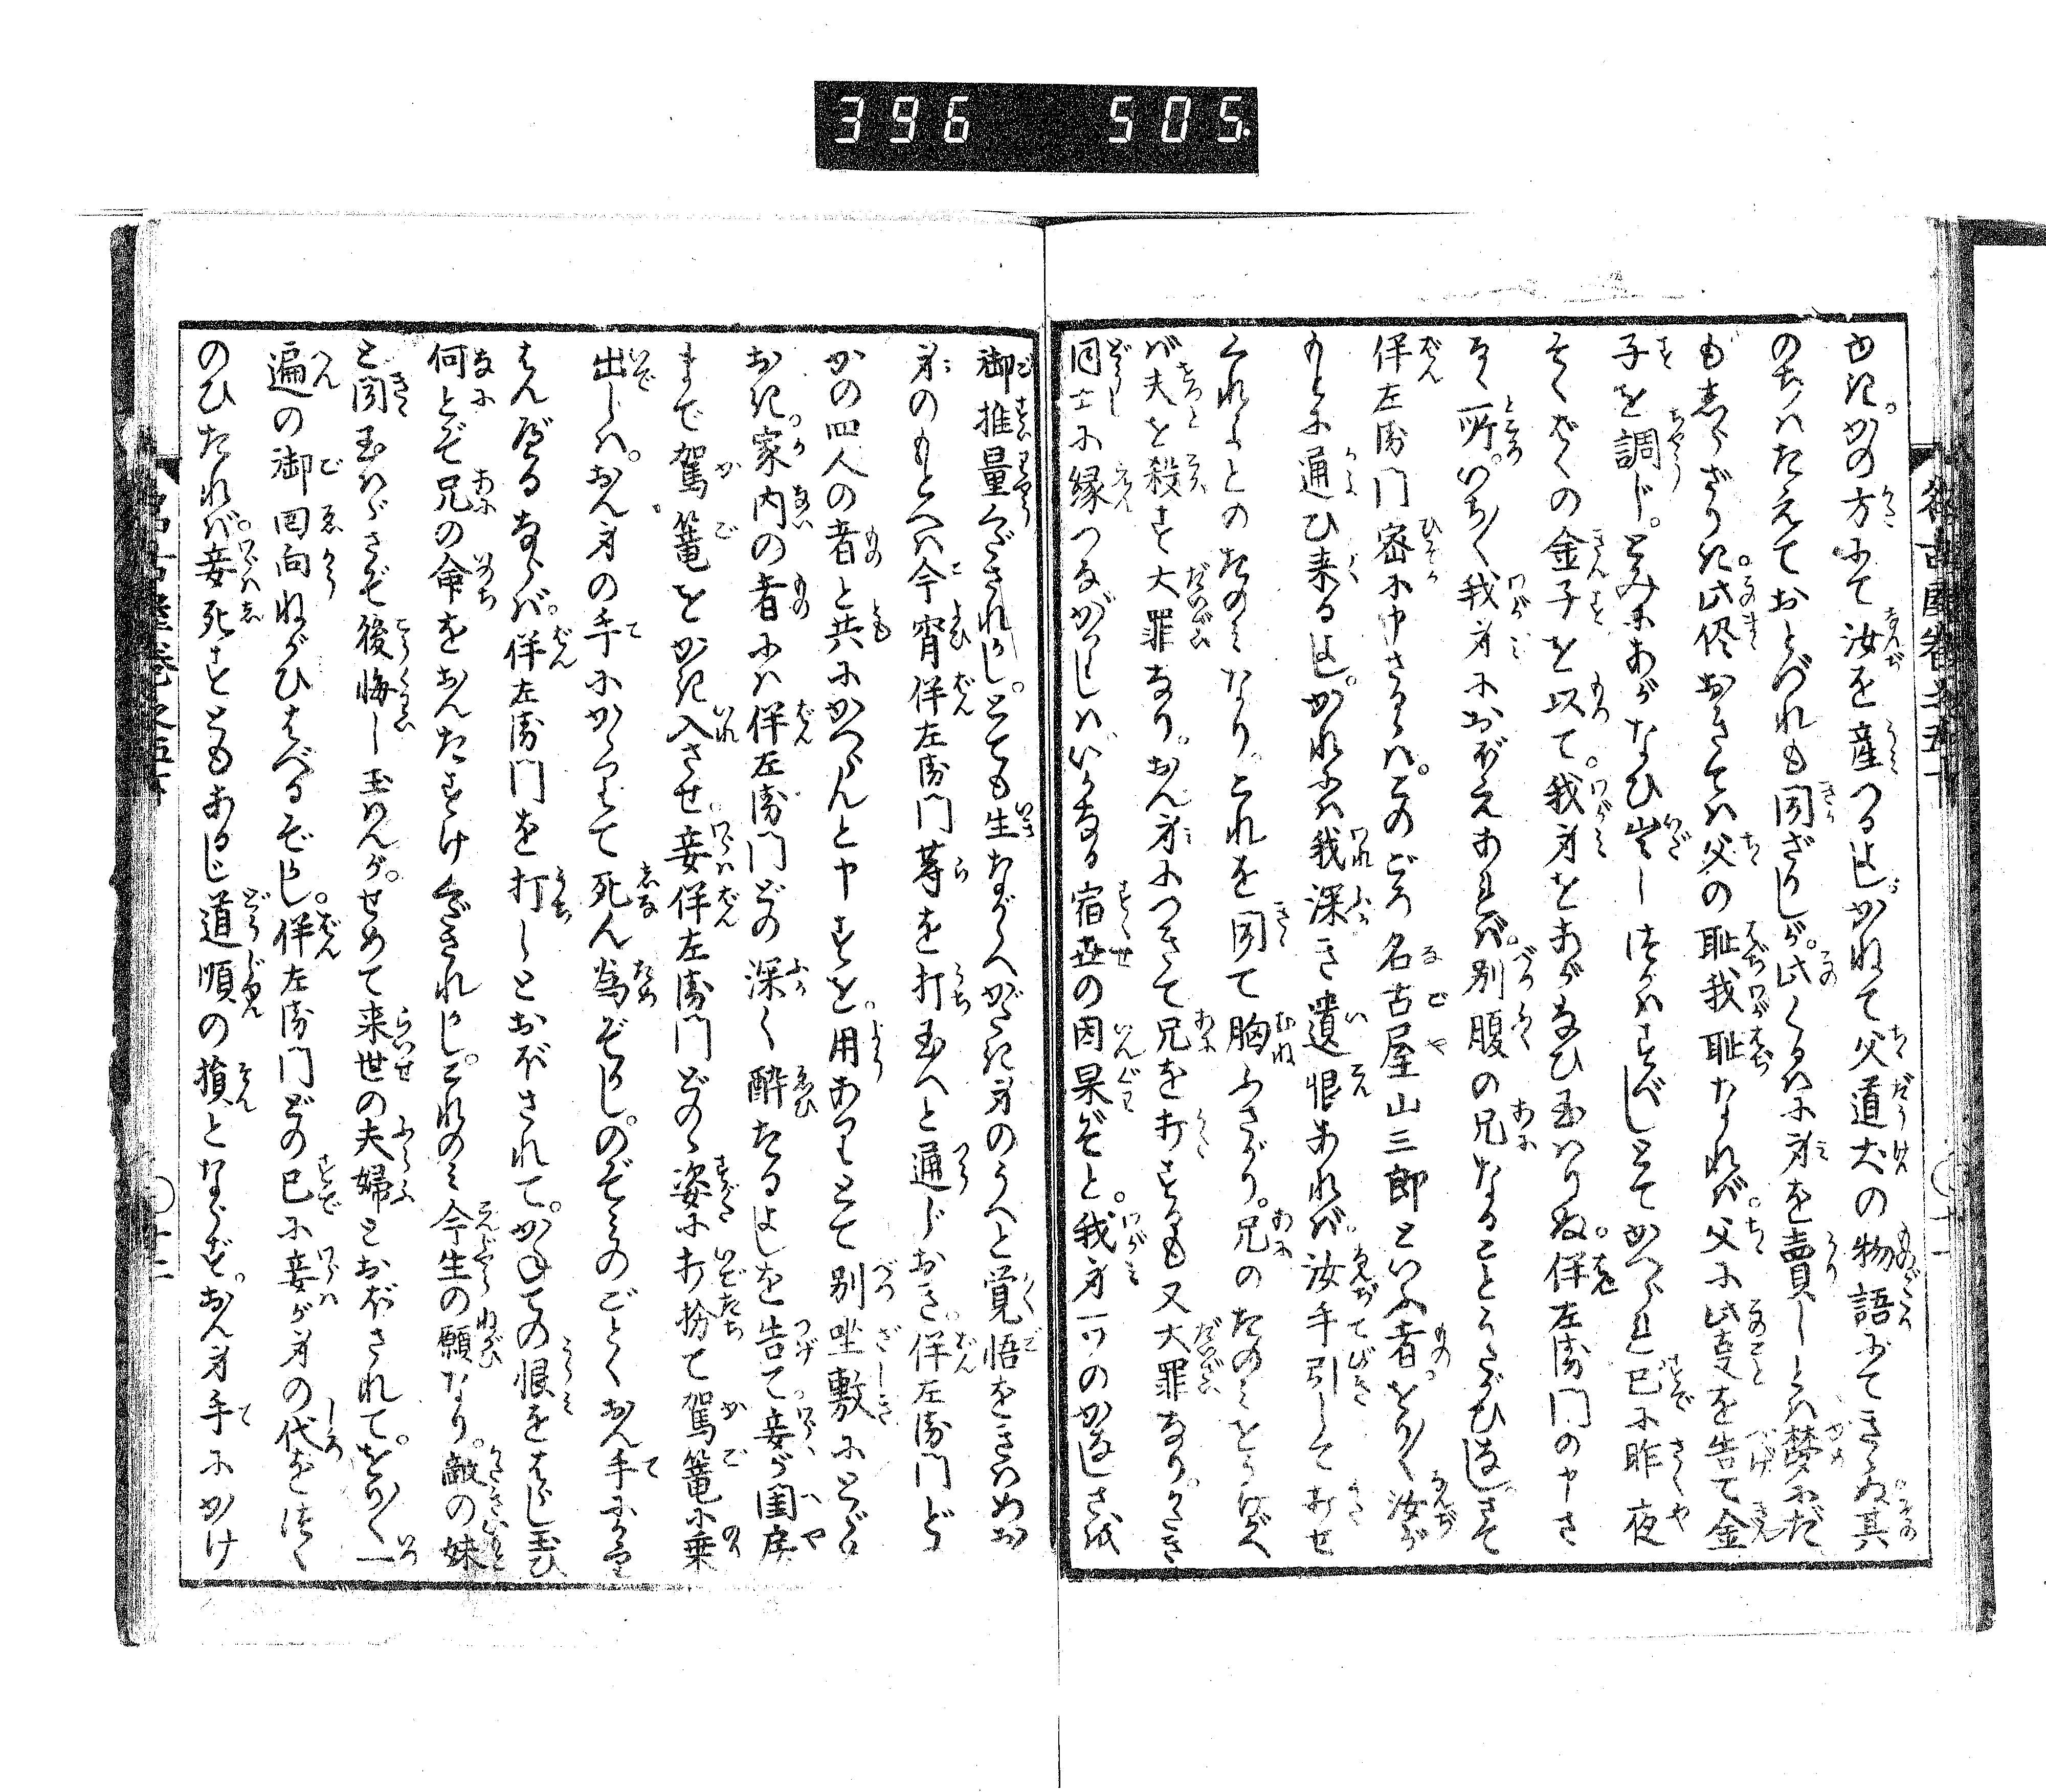 396 505.
せき。かの方にて汝を産つるよし。かねて父道犬の物語にてきゝぬ。其
のちはたえておとづれも聞ざりしが。此くるはに身を賣しとは夢にだ
もしらざりき。此侭おきては父の耻我耻なれば。父に此支を告て金
子を調じ。とみにあがなひ出しつかはすべしとてかへられ已に昨夜
そくばくの金子を以て。我身をあがなひ玉はりぬ。伴左衛門の申さ
るゝ所。いち〳〵我身におぼえあれば。別腹の兄なることうたがひなし。さて
伴左衛門密に申さるゝは。このごろ名古屋山三郎といふ者。をり〳〵汝が
もとに通ひ来るよし。かれには我深き遺恨あれば。汝手引してうたせ
くれよとのたのみなり。これを聞て胸ふさがり。兄のたのみをうけがへ
ば夫を殺す大罪なり。おん身につきて兄を打するも又大罪なり。かたき
同士に縁つながりしはいかなる宿世の因果ぞと。我身一ツのかなしさを
御推量くだされかし。とても生ながらへがたき身のうへと覚悟をきはめお
身のもとへは今宵伴左衛門等を打玉へと通じおき。伴左衛門ど
かの四人の者と共にかへらんと申すを。用ありとて別坐敷にとゞめ
おき家内の者には伴左衛門どの深く酔たるよしを告て。妾が閨房
まで駕篭をかき入させ。妾伴左衛門どのゝ姿に打扮て駕篭に乗
出しは。おん身の手にかゝりて死ん為ぞかし。のぞみのごとくおん手にかゝ
はんべるならば。伴左衛門を打しとおぼされて。かねての恨をはらし玉ひ
何とぞ兄の命をおんたすけくだされかし。これのみ今生の願なり。敵の妹
と聞玉はゞさぞ後悔し玉はんが。せめて来世の夫婦とおぼされて。をり〳〵一
遍の御回向ねがひはべるぞかし。伴左衛門どの已に妾が身の代をつく
のひたれば。妾死すともあるじ道順の損とならず。おん身手にかけ